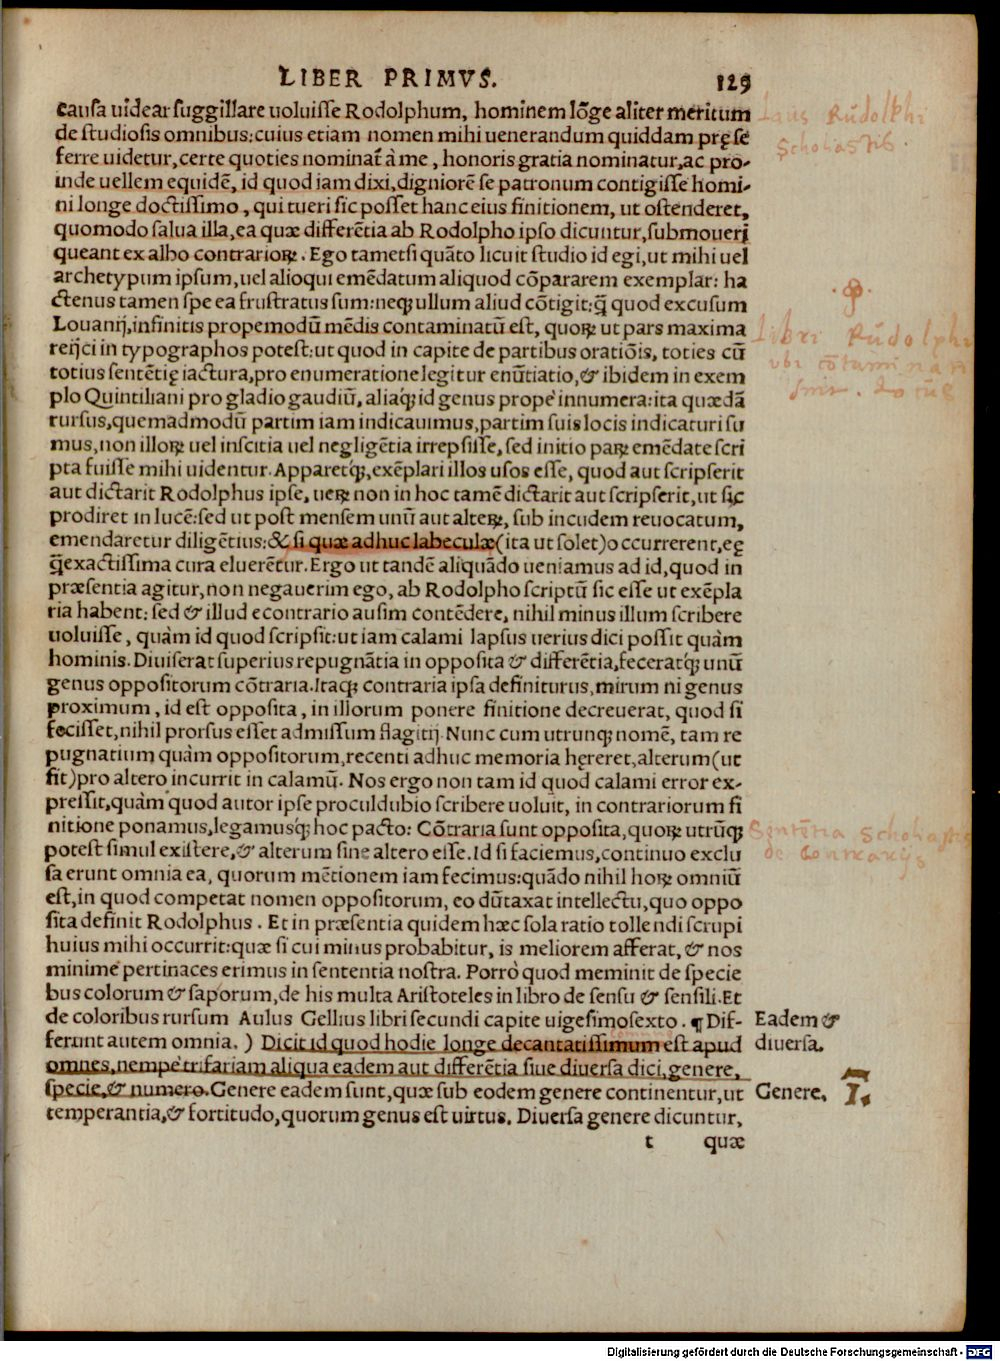 LIBER PRIMVS. 129
causa uidear suggillare uoluisse Rodolphum, hominem lõge aliter meritum
de studiosis omnibus: cuius etiam nomen mihi uenerandum quiddam prę se
ferre uidetur, certe quoties nominať à me, honoris gratia nominatur, ac pro-
inde uellem equidẽ, id quod iam dixi, digniorẽ se patronum contigisse homi-
ni longe doctissimo, qui tueri sic posset hanc eius finitionem, ut ostenderet,
quomodo salua illa, ea quæ differẽtia ab Rodolpho ipso dicuntur, submoueri
queant ex albo contrarioꝝ. Ego tametsi quãto licuit studio id egi, ut mihi uel
archetypum ipsum, uel alioqui emẽdatum aliquod cõpararem exemplar: ha
ctenus tamen spe ea frustratus sum: neqꝫ ullum aliud cõtigit: q̃ quod excusum
Louanij, infinitis propemodũ mẽdis contaminatũ est, quoꝝ ut pars maxima
reijci in typographos potest: ut quod in capite de partibus oratiõis, toties cũ
totius sentẽtię iactura, pro enumeratione legitur enũtiatio, & ibidem in exem
plo Quintiliani pro gladio gaudiũ, aliaqꝫ id genus propè innumera: ita quædã
rursus, quemadmodũ partim iam indicauimus, partim suis locis indicaturi su
mus, non illoꝝ uel inscitia uel negligẽtia irrepsisse, sed initio paꝝ emẽdate scri
pta fuisse mihi uidentur. Apparetqꝫ, exẽplari illos usos esse, quod aut scripserit
aut dictarit Rodolphus ipse, ueꝝ non in hoc tamẽ dictarit aut scripserit, ut sic
prodiret in lucẽ: sed ut post mensem unũ aut alteꝝ, sub incudem reuocatum,
emendaretur diligẽtius: & si quæ adhuc labeculæ (ita ut solet) occurrerent, eę
q̃exactissima cura eluerẽtur. Ergo ut tandẽ aliquãdo ueniamus ad id, quod in
præsentia agitur, non negauerim ego, ab Rodolpho scriptũ sic esse ut exẽpla
ria habent: sed & illud econtrario ausim contẽdere, nihil minus illum scribere
uoluisse, quàm id quod scripsit: ut iam calami lapsus uerius dici possit quàm
hominis. Diuiserat superius repugnãtia in opposita & differẽtia, feceratqꝫ unũ
genus oppositorum cõtraria. Itaqꝫ contraria ipsa definiturus, mirum ni genus
proximum, id est opposita, in illorum ponere finitione decreuerat, quod si
fecisset, nihil prorsus esset admissum flagitij. Nunc cum utrunqꝫ nomẽ, tam re
pugnatium quàm oppositorum, recenti adhuc memoria hęreret, alterum (ut
fit) pro altero incurrit in calamũ. Nos ergo non tam id quod calami error ex-
pressit, quàm quod autor ipse proculdubio scribere uoluit, in contrariorum fi
nitione ponamus, legamusqꝫ hoc pacto: Cõtraria sunt opposita, quoꝝ utrũqꝫ
potest simul existere, & alterum sine altero esse. Id si faciemus, continuo exclu
sa erunt omnia ea, quorum mẽtionem iam fecimus: quãdo nihil hoꝝ omniũ
est, in quod competat nomen oppositorum, eo dũtaxat intellectu, quo oppo
sita definit Rodolphus. Et in præsentia quidem hæc sola ratio tollendi scrupi
huius mihi occurrit: quæ si cui minus probabitur, is meliorem afferat, & nos
minimè pertinaces erimus in sententia nostra. Porrò quod meminit de specie
bus colorum & saporum, de his multa Aristoteles in libro de sensu & sensili. Et
de coloribus rursum Aulus Gellius libri secundi capite uigesimosexto. ¶ Dif-
ferunt autem omnia. ) Dicit id quod hodie longe decantatissimum est apud
omnes, nempè trifariam aliqua eadem aut differẽtia siue diuersa dici, genere,
specie, & numero. Genere eadem sunt, quæ sub eodem genere continentur, ut
temperantia, & fortitudo, quorum genus est uirtus. Diuersa genere dicuntur,
t quæ
Laus Rudolphi
Scholiastis.
Libri Rudolphi
ubi cõtaminati
Sententia Scholiastis
de Contrarijs
Eadem &
diuersa.
Genere. I.
Digitalisierung gefördert durch die Deutsche Forschungsgemeinschaft - DFG